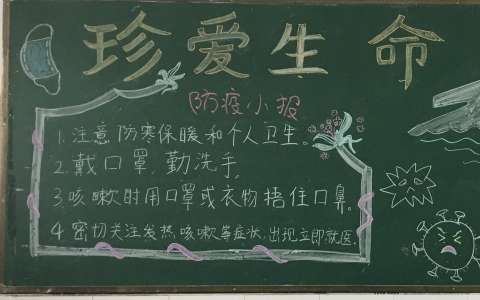 珍爱生命
防疫小报
1.注意防寒保暖和个人卫生。
2.戴口罩,勤洗手,
3.咳嗽时用口罩或衣物捂住口鼻。
4.密切关注发热,咳嗽等症状,出现立即就医.